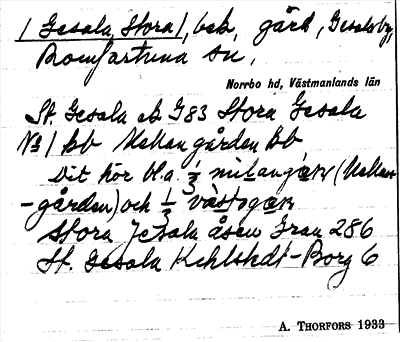 / Gesala, Stora /, bek., gård, Gesalaby,
Romfartuna sn,
Norrbo hd, Västmanlands län
St. Gesala ek G83 Stora Gesala
№ 1 bb Mellangården bb
Dit hör bl.a. 1/3 milangæn (Mellan-
-gården) och 1/3 västogæn
Stora Jesala åsen Grau 286
St. Gesala Kehlstedt-Borg 6
A. THORFORS 1933